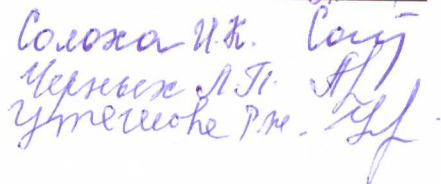 Солоха И.К.
Черных Л.П.
Утешова Рж.